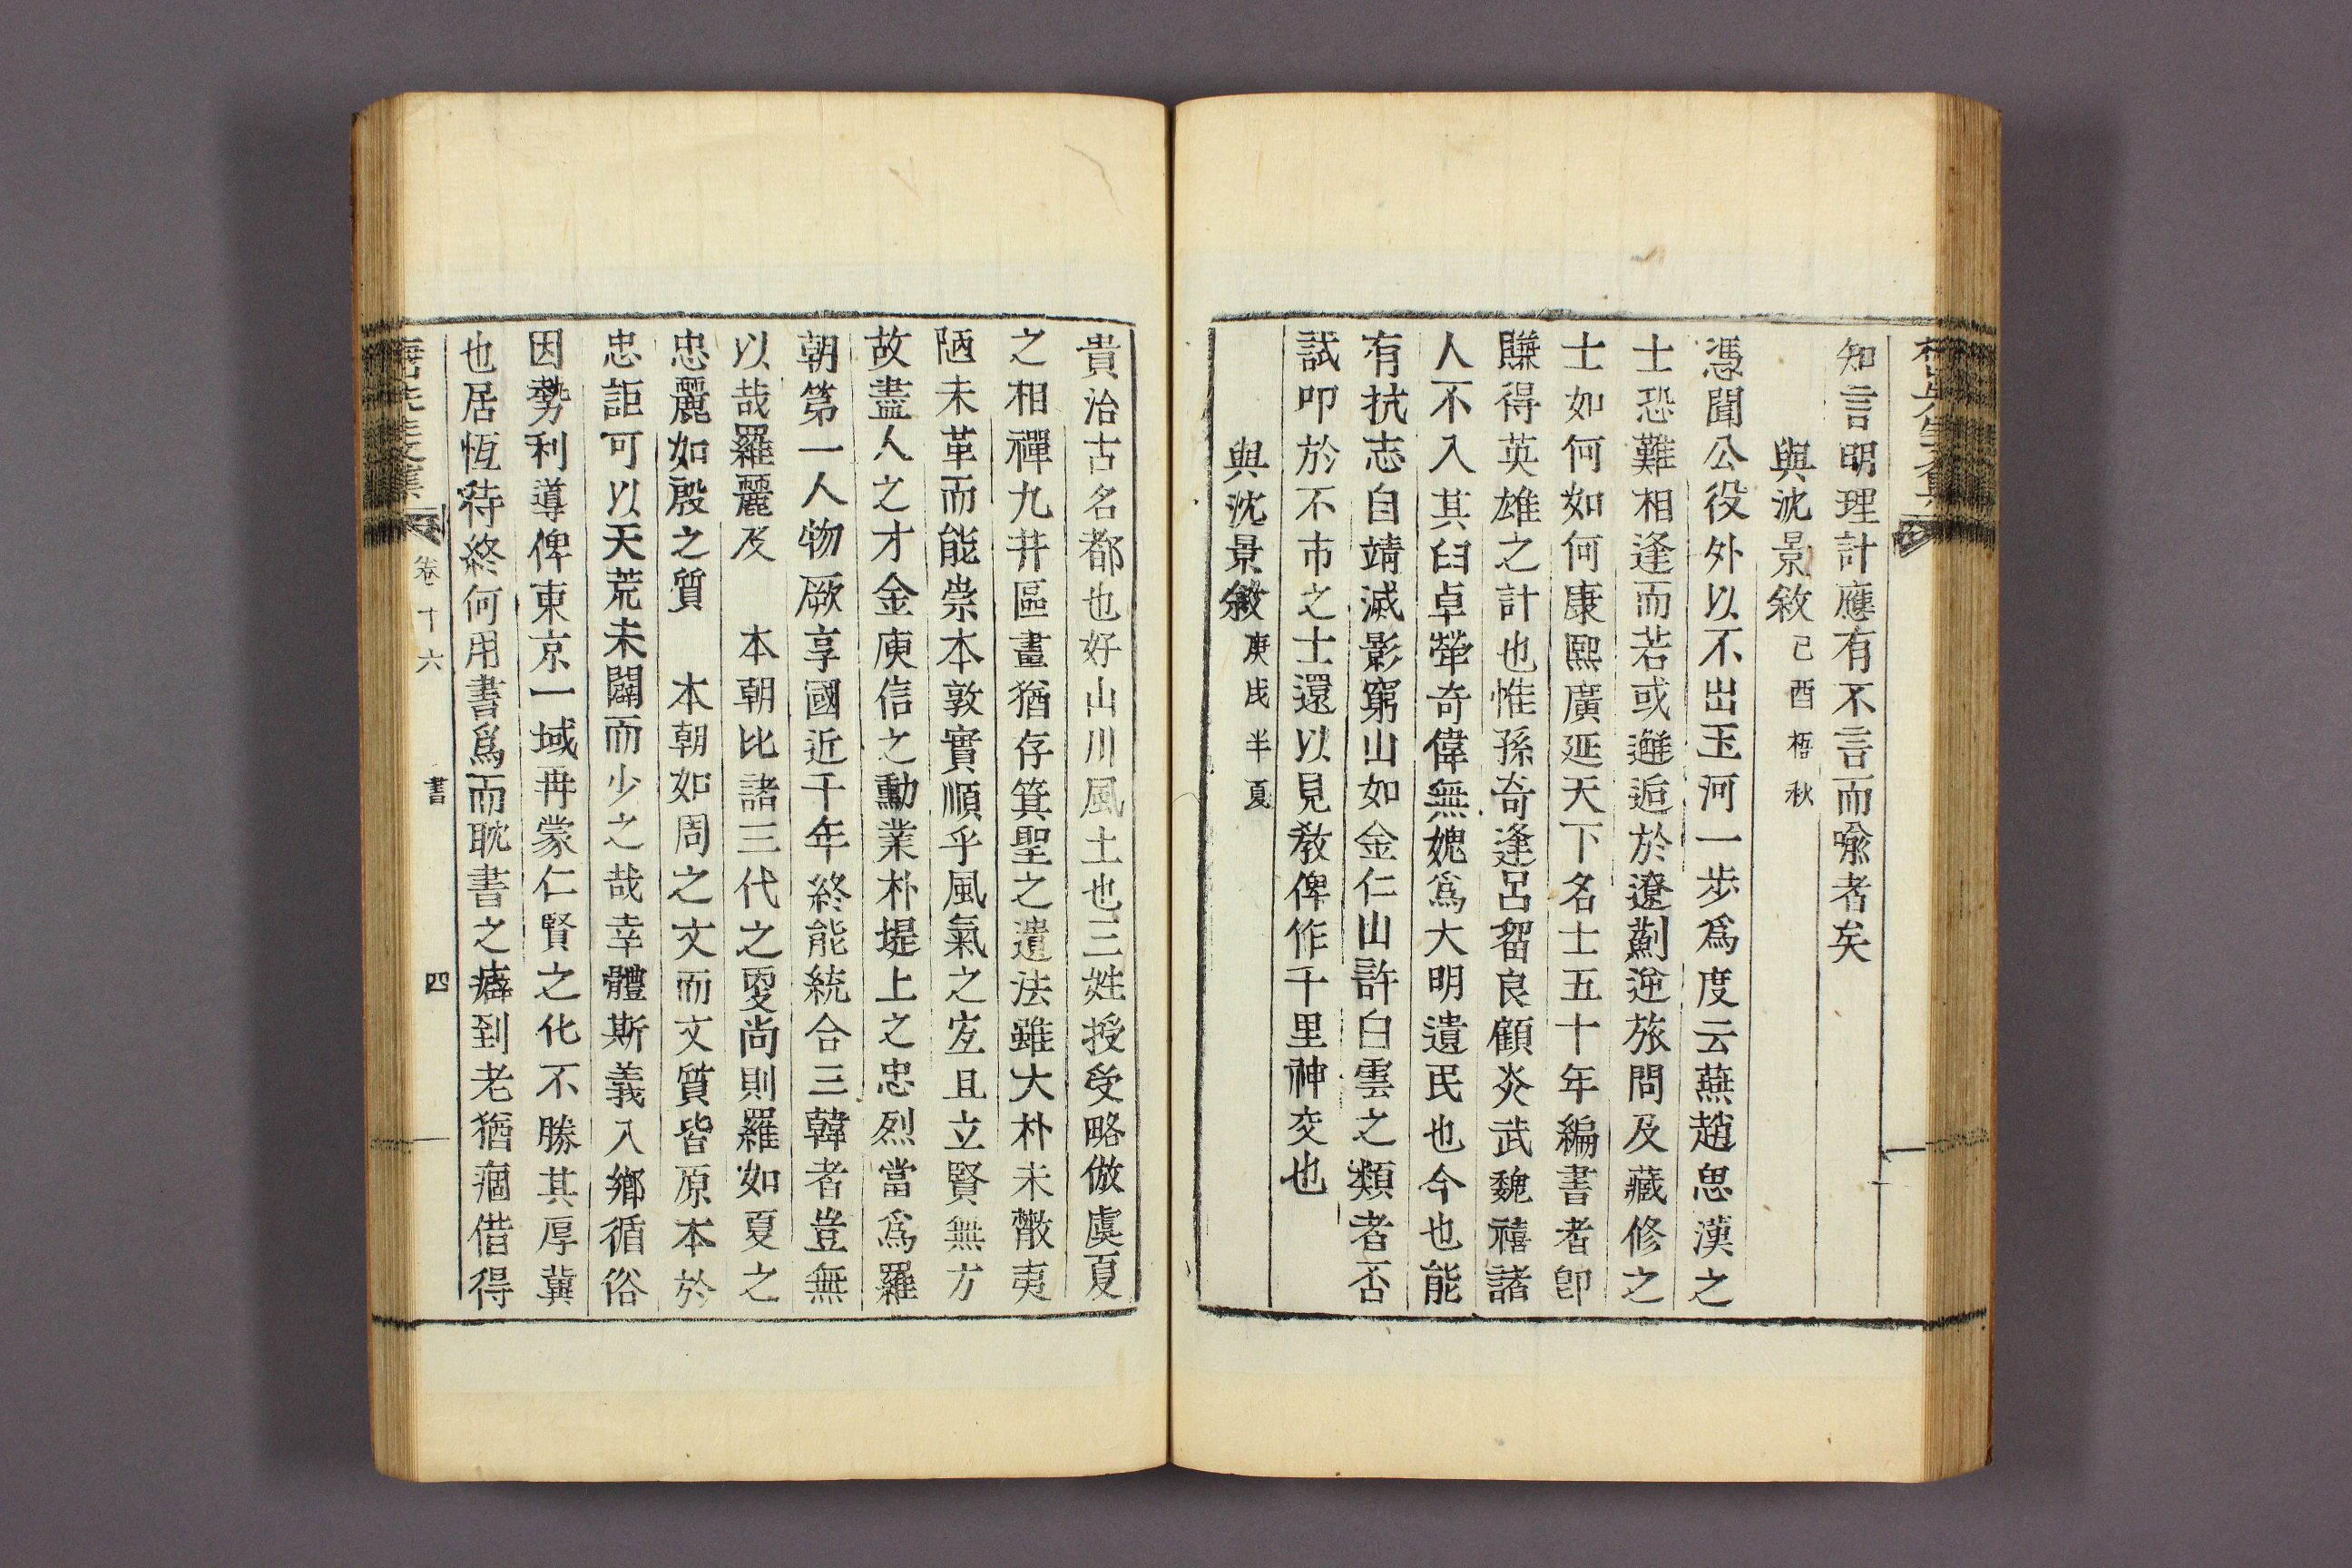 知言明理計應有不言而喩者矣
與沈景敘己酉梧秋
憑聞公役外以不出玉河一步爲度云燕趙思漢之
士恐難相逢而若或邂逅於遼薊逆旅問及藏修之
士如何如何康熙廣延天下名士五十年編書者卽
賺得英雄之計也惟孫奇逢呂留良顧炎武魏禧諸
人不入其臼卓犖奇偉無媿爲大明遺民也今也能
有抗志自靖滅影窮山如金仁山許白雲之類者否
試叩於不市之士還以見敎俾作千里神交也
與沈景敘庚戌半夏
貴治古名都也好山川風土也三姓授受略倣虞夏
之相禪九井區畫猶存箕聖之遺法雖大朴未散夷
陋未革而能崇本敦實順乎風氣之宐且立賢無方
故盡人之才金庾信之勳業朴堤上之忠烈當爲羅
朝第一人物厥享國近千年終能統合三韓者豈無
以哉羅麗及 本朝比諸三代之㪅尚則羅如夏之
忠麗如殷之質 本朝如周之文而文質皆原本於
忠詎可以天荒未闢而少之哉幸體斯義入鄉循俗
因勢利導俾東京一域再蒙仁賢之化不勝其厚冀
也居恆待終何用書爲而耽書之癖到老猶痼借得
卷十六 書 四